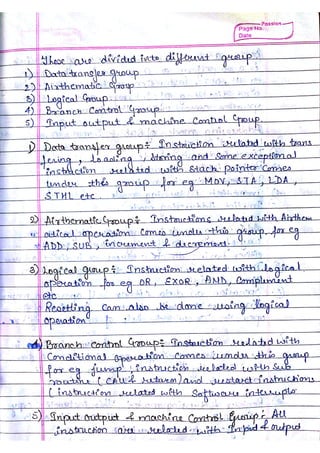 Passion
Page No.
Date
These are divided into different group.
1) Data transfer group
2) Airthematic Group
3) Logical Group
4) Branch Control Group
5) Input output & machine Control Group.
1) Data transfer group: Instruction related with trans
fering, loading, storing and some exceptional
instruction related with stack pointer comes
under this group for eg MOV, STA, LDA,
STHL etc
2) Airthematic Group: Instructions related with Airthem
atical operation comes under this group for eg
ADD, SUB, increment & decrement
3) Logical group: Instruction related with logical
operation for eg OR, EXOR, AND, Compliment
etc
can also be done using logical
operation
4) Branch control Group: Instruction related with
Conditional operation comes under this group
for eg jump, instruction related with sub
routine (Call & return) and restart instructions
(instruction related with Software interrupts
5) Input output & machine Control Group: All
instruction are related with Input & output